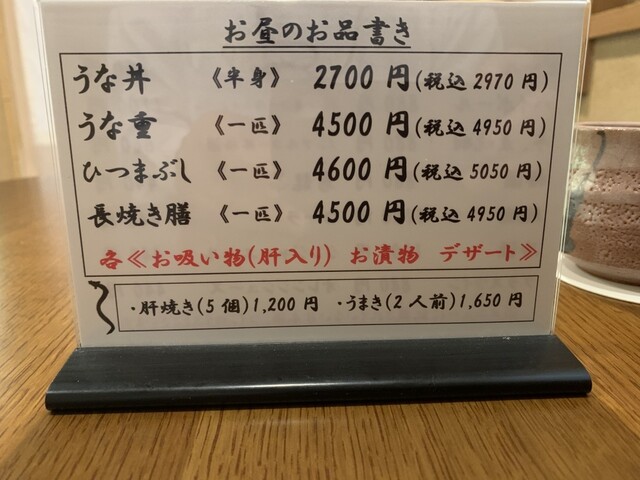 お昼のお品書き
うな丼 《半身》 2700 円(税込 2970 円)
うな重 《一匹》 4500 円(税込 4950 円)
ひつまぶし 《一匹》 4600 円(税込 5050 円)
長焼き膳 《一匹》 4500 円(税込 4950 円)
各≪お吸い物(肝入り) お漬物 デザート≫
・肝焼き(5 個)1,200 円 ・うまき(2 人前)1,650 円